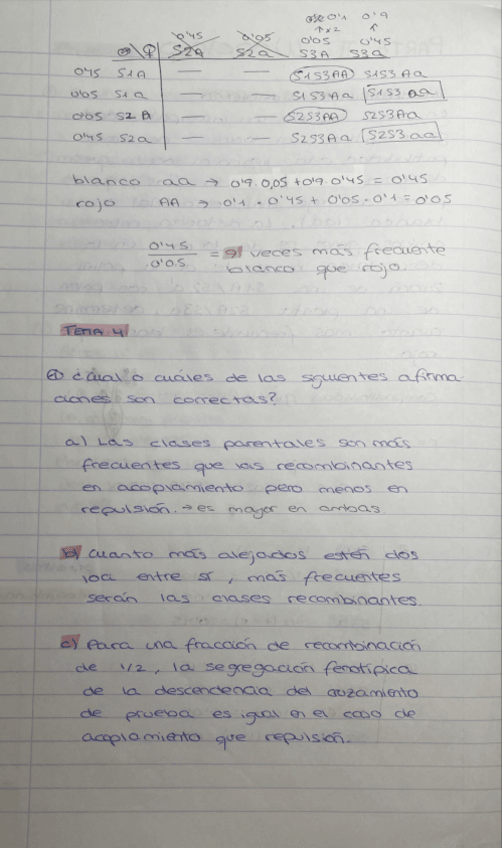 0'1 0'9
↑x2 ↑
0'45 0'05 0'05 0'45
♂\♀ S2A S2a S3A S3a
0'45 S1A — — S1S3AA S1S3Aa
0'05 S1a — — S1S3Aa S1S3aa
0'05 S2A — — S2S3AA S2S3Aa
0'45 S2a — — S2S3Aa S2S3aa
blanco aa → 0'9·0,05+0'9·0'45=0'45
rojo AA → 0'1·0'45+0'05·0'1=0'05
0'45/0'05 = 9 veces más frecuente
blanco que rojo.
TEMA 4
① ¿Cuál o cuáles de las siguientes afirma-
ciones son correctas?
a) Las clases parentales son más
frecuentes que las recombinantes
en acoplamiento pero menos en
repulsión. → es mayor en ambas
b) Cuanto más alejados estén dos
loci entre sí, más frecuentes
serán las clases recombinantes.
c) Para una fracción de recombinación
de 1/2, la segregación fenotípica
de la descendencia del cruzamiento
de prueba es igual en el caso de
acoplamiento que repulsión.